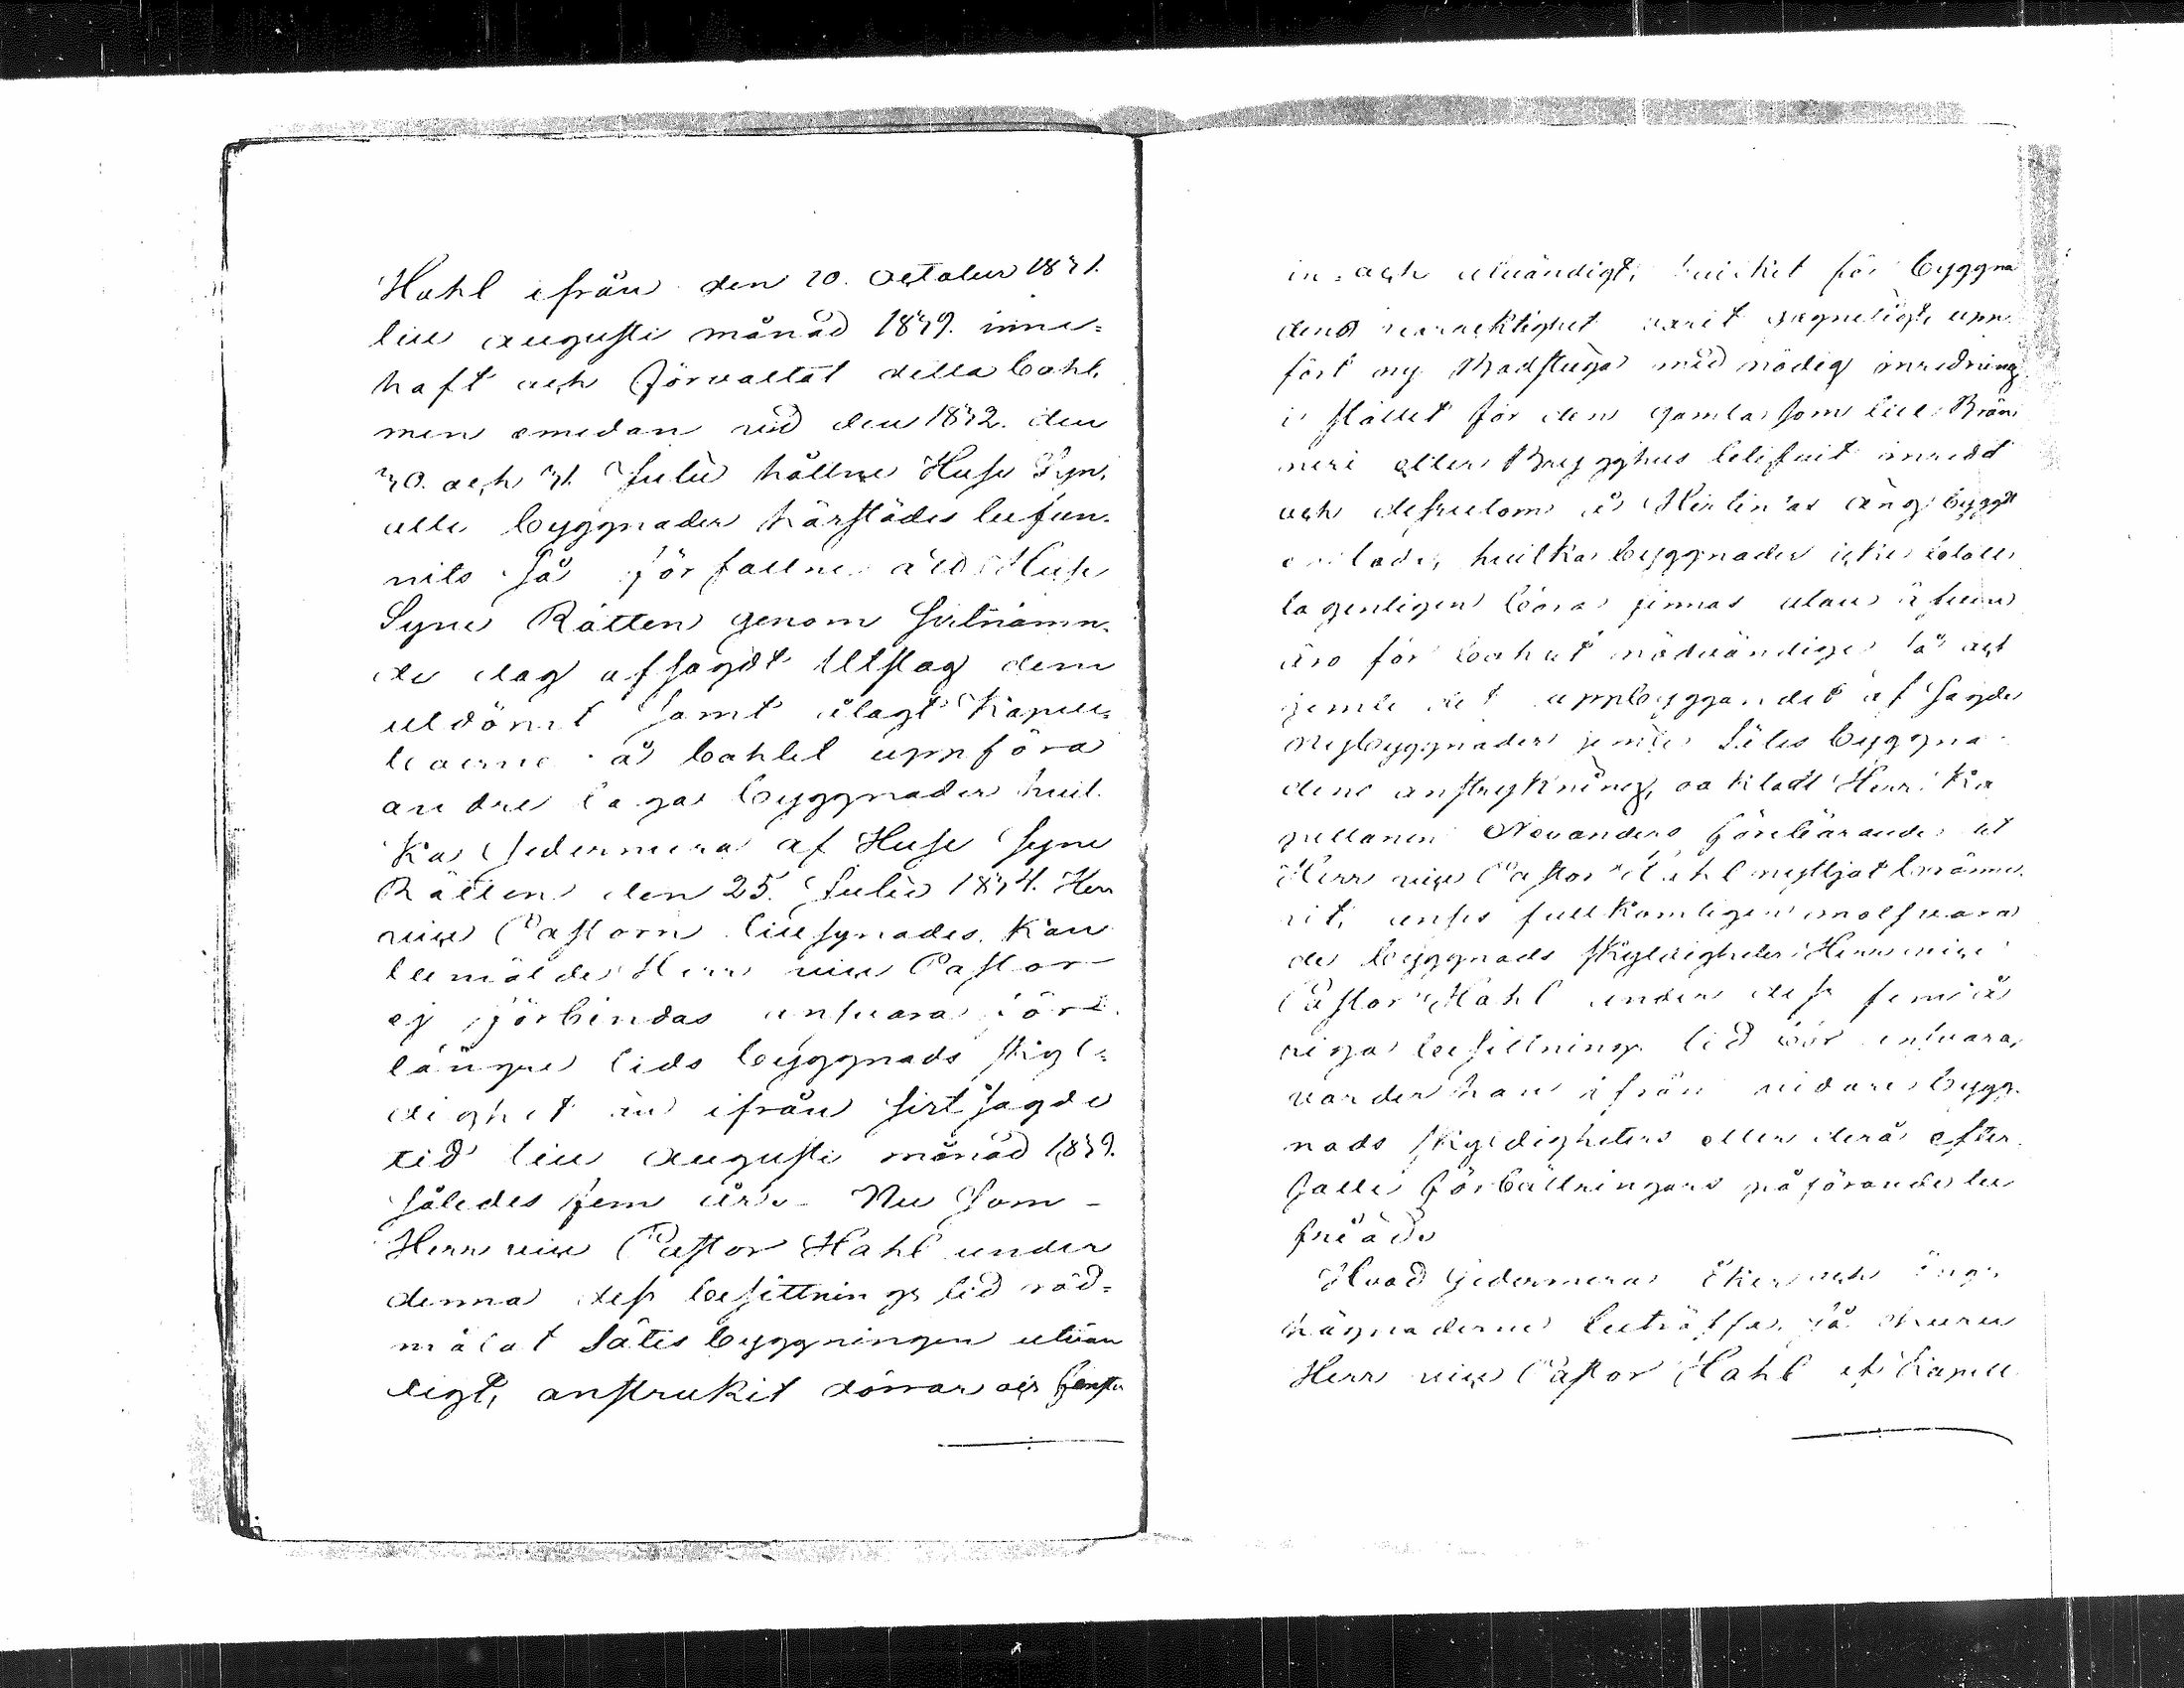 Hahl ifrån den 10. October 1831.
till augusti månad 1839. inne=
haft och förvaltat detta bohl,
men emedan vid den 1832. den
30. och 31. Julii hållne Huse Syn,
alla byggnader härstädes befun-
nits så förfallne att Huse
Syne Rätten genom sistnämn-
de dag afsagdt Utslag dem
utdömt samt ålagt Kapell-
boerne å bohlet uppföra
andre laga byggnader hvil-
ka sedermera af Huse Syne
Rätten den 25. Julii 1834. Herr
vice Pastorn tillsynades. Kan
bemälde Herr vice Pastor
ej förbindas ansvara före
längre tids byggnads skyl=
dighet än ifrån sist sagde
tid till augusti månad 1839.
således fem år. Nu som
Herr vice Pastor Hahl under
denna dess besittnings tid röd=
målat Sätes byggningen utvän
digt, anstrukit dörrar och fenster
in= och utvändigt, hvilket för byggna
dens varaktighet varit gagneligt, upp-
fört ny Badstuga med nödig inredning
i stället för den gamla som till Brän-
neri eller Brygghus blifvit inredt
och dessutom å ängbyggt
en lada, hvilka byggnader icke
lagenligen böra finnas utan äfven
äro för bohlet nödvändige så och
jemte det uppbyggandet af sagde
nybyggnader jemte Sätes byggna-
dens anstrykning, oaktadt Herr Ka
pellanen Novanders förebärande att
Herr vice Pastor Hahl nyttjat bränne-
rit, anses fullkomligen motsvara
de byggnads skyldigheter Herr vice
Pastor Hahl under dess fem å
riga besittnings tid bör ansvara,
varder han ifrån vidare bygg-
nads skyldigheters eller derå efter
falle förbättringars påförande be
friade
Hvad sedermera Åker och Ängs
hägnaderne beträffa, så
Herr vice Pastor Hahl et Kapell